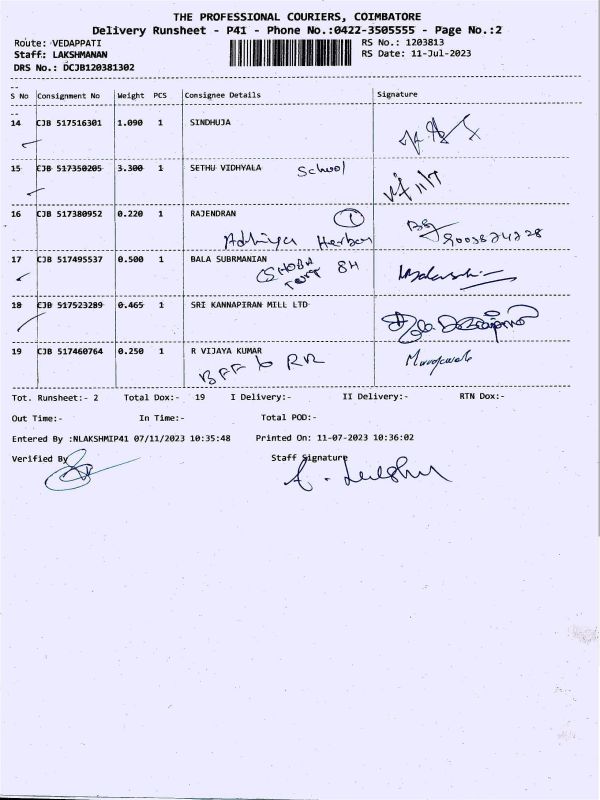 THE PROFESSIONAL COURIERS, COIMBATORE
Delivery Runsheet - P41 - Phone No.:0422-3505555 - Page No.:2
Route: VEDAPPATI
RS No.: 1203813
Staff: LAKSHMANAN
RS Date: 11-Jul-2023
DRS No.: DCJB120381302
S No Consignment No Weight PCS Consignee Details Signature
14 CJB 517516301 1.090 1 SINDHUJA
15 CJB 517350205 3.300 1 SETHU VIDHYALA School
16 CJB 517380952 0.220 1 RAJENDRAN 1
17 CJB 517495537 0.500 1 BALA SUBRMANIAN
18 CJB 517523289 0.465 1 SRI KANNAPIRAN MILL LTD
19 CJB 517460764 0.250 1 R VIJAYA KUMAR
Tot. Runsheet:- 2 Total Dox:- 19 I Delivery:- II Delivery:- RTN Dox:-
Out Time:- In Time:- Total POD:-
Entered By :NLAKSHMIP41 07/11/2023 10:35:48 Printed On: 11-07-2023 10:36:02
Verified By Staff Signature